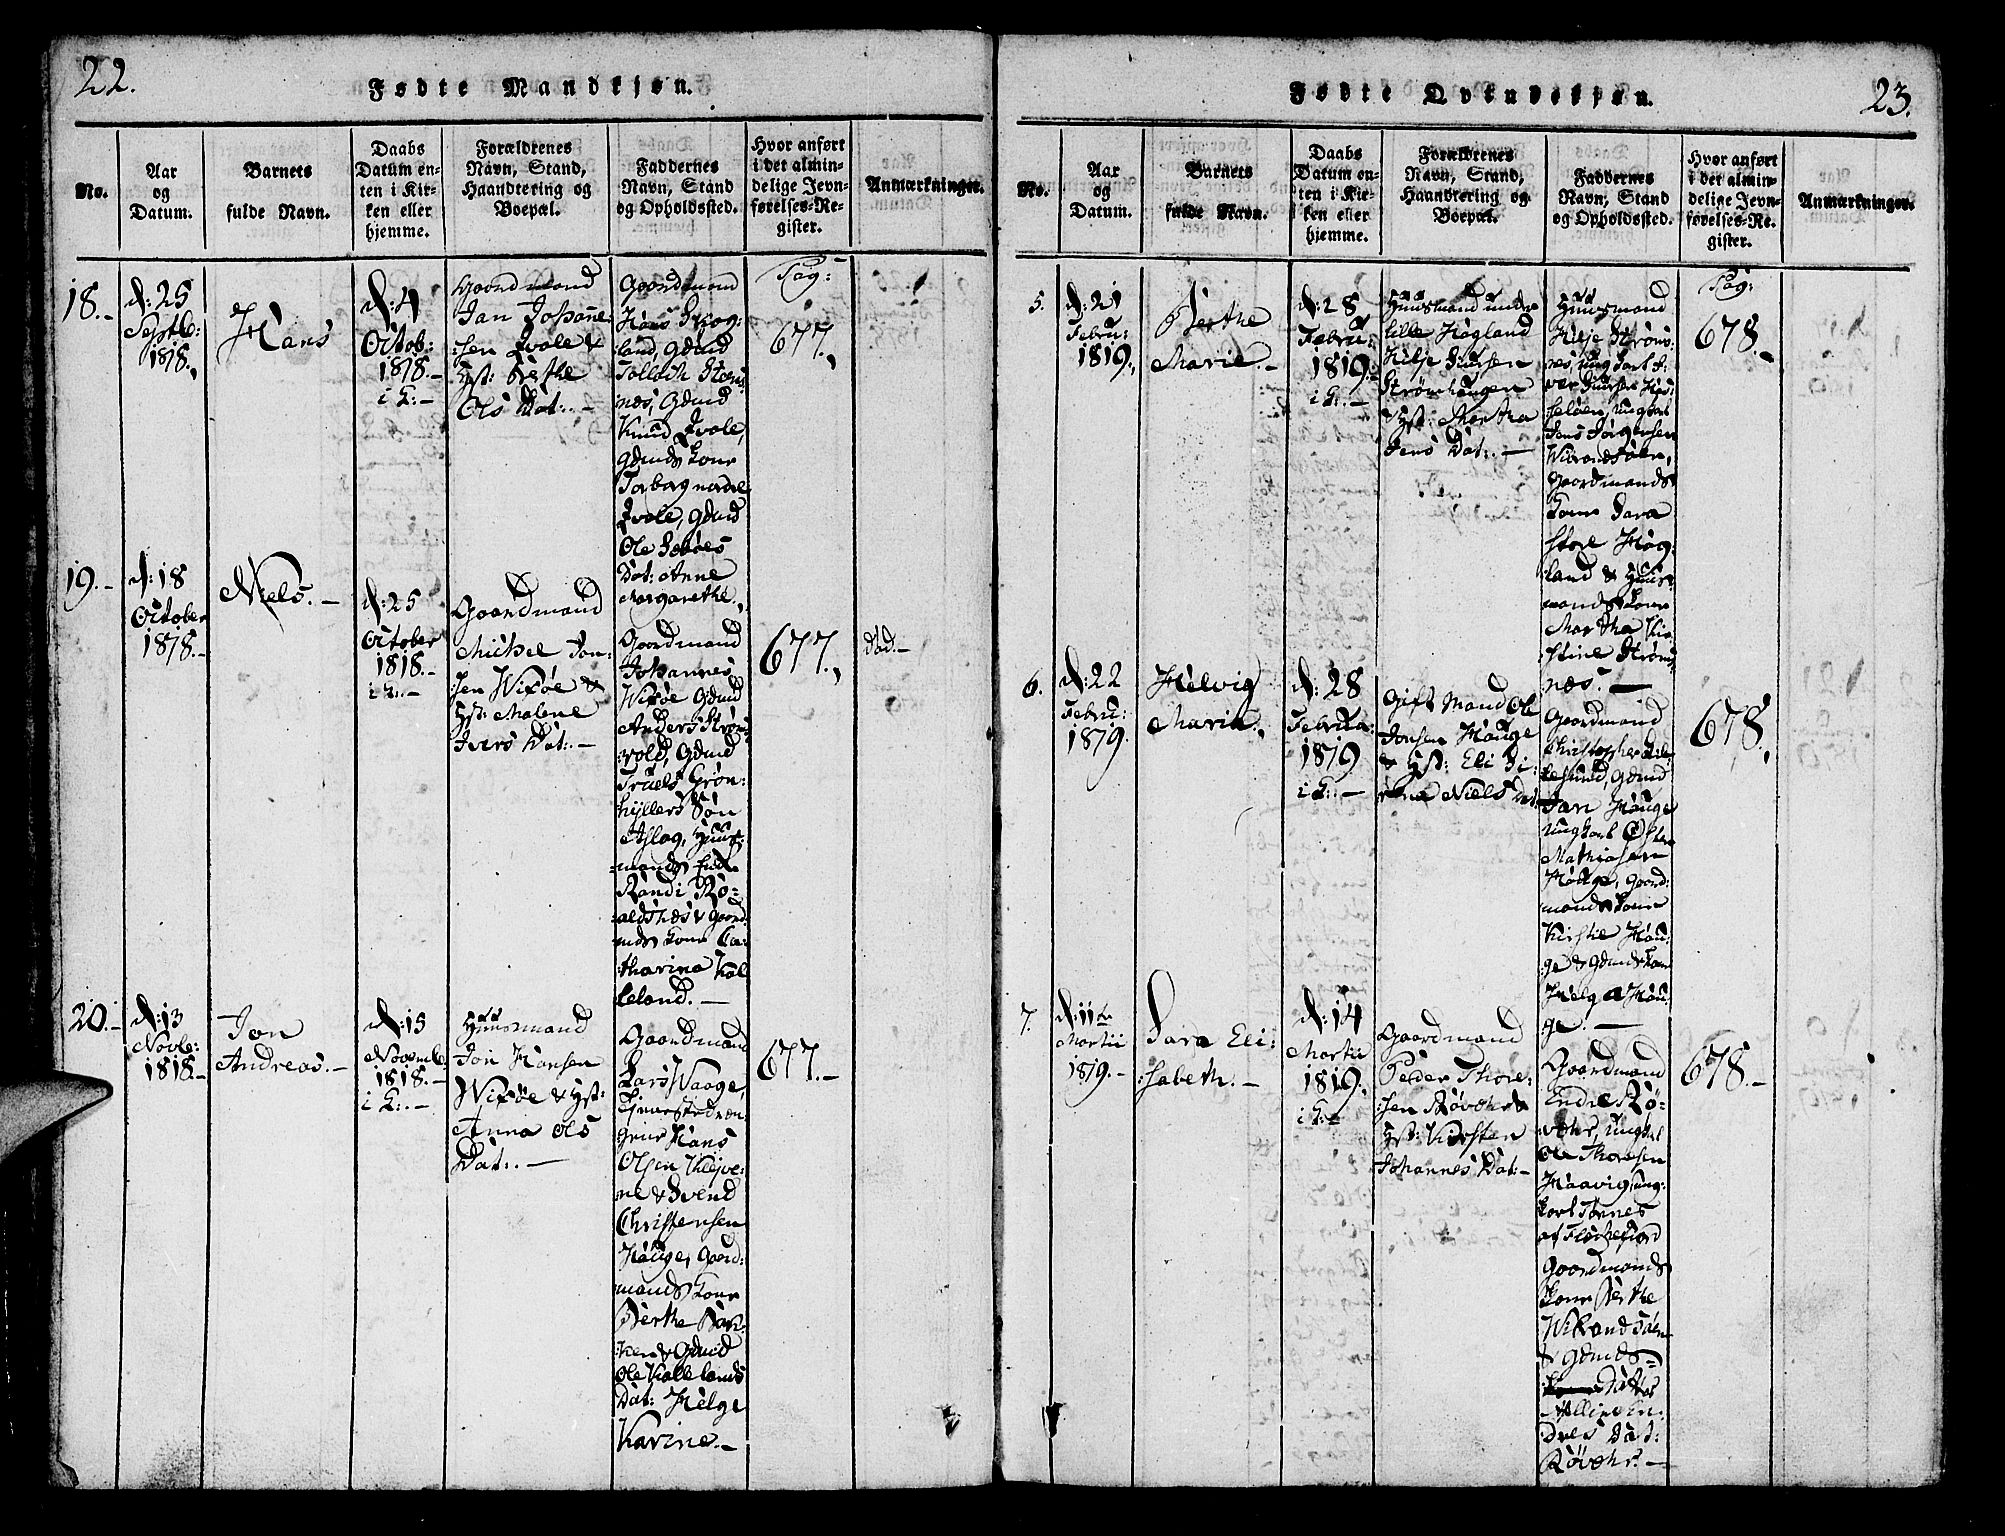 22.
Fødte Mandkjøn.
No.
Aar
og
Datum.
Barnets
fulde Navn.
Daabs
Datum en-
ten i Kir-
ken eller
hjemme.
Forældrenes
Navn, Stand,
Haandtering og
Boepæl.
Faddernes
Navn, Stand
og Opholdssted.
Hvor anført
i det almin-
delige Jevn-
førelses-Re-
gister.
Anmærkninger.
18.-
d: 25
Septbr:
1818.,
Hans
d: 4
Octob:
1818.-
i K:-
Goordmand
Jan Johane:
:sen Ivole &
Hst: Berthe
Ols Dat:.-
Goordmand
Hans Skog:
land, Gdmd
Knud Ivole,
Gdmds Kone
Torborg nordre
Ivole, Gdmd
Dat: Anne
Margarethe.,
Pag:
677.,
19.-
d: 18
October
1818.-
Niels.-
d: 25
October
1818.-
i K:.-
Goordmand
Michel Jon:
:sen Wixøe &
Hst: Malene
Ivers Dat:.-
Goordmand
Johannes
Wixøe Gdmd
Anders Strøm
:vold, Gdmd
Truels Grøn:
hyllers Søn
Aslag, Huus:
Randi Rø=
:aldsnes & Goord
mds Kone Ca:
:tharina Kal
leland.-
677.,
død.-
20.-
d: 13
Novbr:
1818.-
Jon
Andreas.-
d: 15
Novembr
1818.-
i K:.-
Huusmand
Jon Hansen
Wixøe & Hst:
Anna Ols
Dat:.-
Goordmand
Lars Waage,
Tjenestedren
gene Hans
Olsen Kleive:
ne & Svend
Christensen
Hauge, Goord:
mands Kone
Berthe Bak:
ken & Gdmd
Ole Kallelands
Dat: Helge
Karine.-
677.-
23.
Fødte Qvindekjøn.
No.
Aar
og
Datum.
Barnets
fulde Navn.
Daabs
Datum en-
ten i Kir-
ken eller
hjemme.
Forældrenes
Navn, Stand,
Haandtering og
Boepæl.
Faddernes
Navn, Stand
og Opholdssted.
Hvor anført
i det almin-
delige Jevn-
førelses-Re-
gister.
Anmærkninger.
5.
d: 21
Febru:
1819.,
Berthe
Marie.-
d: 28
Febru:
1819.-
i K:.-
Huusmand under
Lille Hogland
Strømhaugen
Hst: Martha
Jens Dat:.-
Huusmand
Jens Jørgensen
Goordmands
Kone Sara
store Hog:
land & Huus
mands Kone
Martha Kir:
:stine Strøm
næs.-
Pag:
678.-
6.
d: 22
Febru:
1819.
Helvig
Maria.,
d: 28
Februa:
1819
i K:.-
Gift Mand Ole
Jonsen Hauge
& Hst: Eli Si:
rina Niels Dat:
Goordmand
Christopher
Jan Hauge
Ungkarl
Mathiasen
Hauge, Goord:
mands Kone
Kirstie Hau:
ge & Gdmds Kone
Helga Hau:
ge.-
678.,
7.
d: 11te
Martii
1819.-
Sara Eli:
:sabeth.-
d: 14
Martii
1819.
i K:-
Goordmand
Peder Thore:
:sen Røvehr &
Hst: Kirsten
Johannes Dat:-
Goordmand
Endre Rø:
vehr, Ungkarl
Ole Thoresen
Haavig, ung:
karl Tønnes
af Flechefiord
Goordmands
Kone Berthe
& Gdmds-
dres Dat:
Røvehr.-
678.-